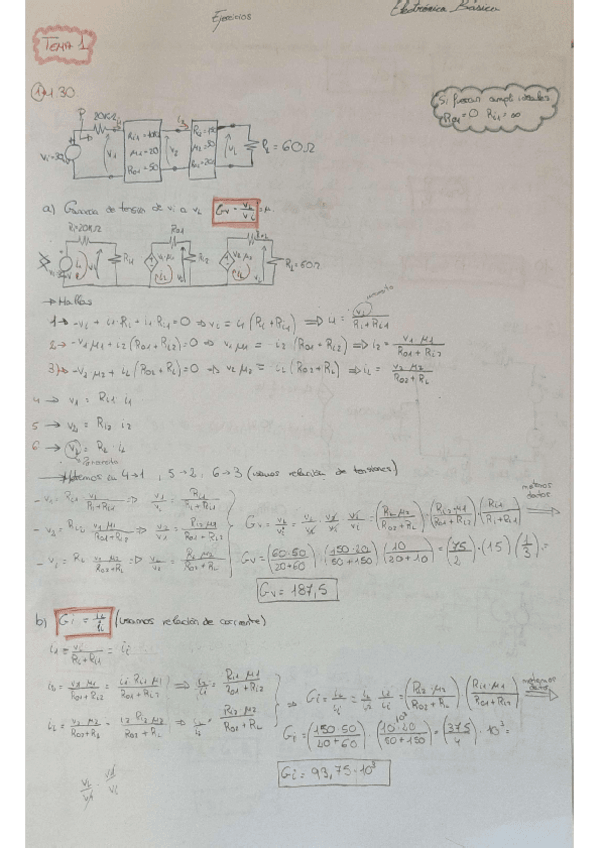 Ejercicios
Electrónica Básica
TEMA 1
① 4.30
Si fueran ampl. ideales
R01=0 Ri1=∞
P
20KΩ
Ri1=10K
μ1=20
R01=50
V1
V2
VL
RL=60Ω
a) Ganancia de tensión de vi a vL Gv = vL/vi
Ri=20KΩ
R01
R02
Ri1
V1·μ1
Ri2
V2·μ2
RL=60Ω
→ Mallas
1→ -vi + i1·Ri + i1 Ri1 = 0 ⇒ vi = i1 (Ri+Ri1) ⇒ i1 = vi/(Ri+Ri1)
2→ -v1 μ1 + i2 (R01+Ri2) = 0 ⇒ v1 μ1 = i2 (R01+Ri2) ⇒ i2 = v1 μ1/(R01+Ri2)
3→ -v2 μ2 + iL (R02+RL) = 0 ⇒ v2 μ2 = iL (R02+RL) ⇒ iL = v2 μ2/(R02+RL)
4 → v1 = Ri1 i1
5 → v2 = Ri2 i2
6 → vL = RL iL
→ Metemos en 4→1, 5→2, 6→3 (usamos relación de tensiones)
- v1 = Ri1 vi/(Ri+Ri1) ⇒ v1/vi = Ri1/(Ri+Ri1)
- v2 = Ri2 v1 μ1/(R01+Ri2) ⇒ v2/v1 = Ri2 μ1/(R01+Ri2)
- vL = RL v2 μ2/(R02+RL) ⇒ vL/v2 = RL μ2/(R02+RL)
Gv = vL/vi = vL/v2 · v2/v1 · v1/vi = (RL μ2/(R02+RL)) · (Ri2 μ1/(R01+Ri2)) · (Ri1/(Ri+Ri1))
metemos datos
Gv = (60·50/(20+60)) · (150·20/(50+150)) · (10/(20+10)) = (75/2) · (15) (1/3) =
Gv = 187,5
b) Gi = iL/ii (usamos relación de corriente)
i1 = vi/(Ri+Ri1) = ii
i2 = v1 μ1/(R01+Ri2) = ii Ri1 μ1/(R01+Ri2) ⇒ i2/ii = Ri1 μ1/(R01+Ri2)
iL = v2 μ2/(R02+RL) = i2 Ri2 μ2/(R02+RL) ⇒ iL/i2 = Ri2 μ2/(R02+RL)
⇒ Gi = iL/ii = iL/i2 · i2/ii = (Ri2 μ2/(R02+RL)) · (Ri1 μ1/(R01+Ri2))
metemos datos
Gi = (150·50/(20+60)) · (10³ 10·20/(50+150)) = (375/4) · 10³ =
Gi = 93,75·10³